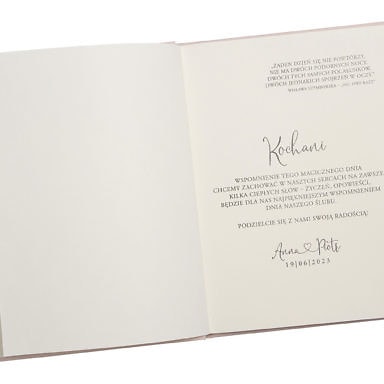 „ŻADEN DZIEŃ SIĘ NIE POWTÓRZY,
NIE MA DWÓCH PODOBNYCH NOCY,
DWÓCH TYCH SAMYCH POCAŁUNKÓW,
DWÓCH JEDNAKICH SPOJRZEŃ W OCZY."
WISŁAWA SZYMBORSKA - „NIC DWA RAZY"
Kochani
WSPOMNIENIE TEGO MAGICZNEGO DNIA
CHCEMY ZACHOWAĆ W NASZYCH SERCACH NA ZAWSZE.
KILKA CIEPŁYCH SŁÓW - ŻYCZEŃ, OPOWIEŚCI,
BĘDZIE DLA NAS NAJPIĘKNIEJSZYM WSPOMNIENIEM
DNIA NASZEGO ŚLUBU.
PODZIELCIE SIĘ Z NAMI SWOJĄ RADOŚCIĄ!
Anna ♡ Piotr
19|06|2023